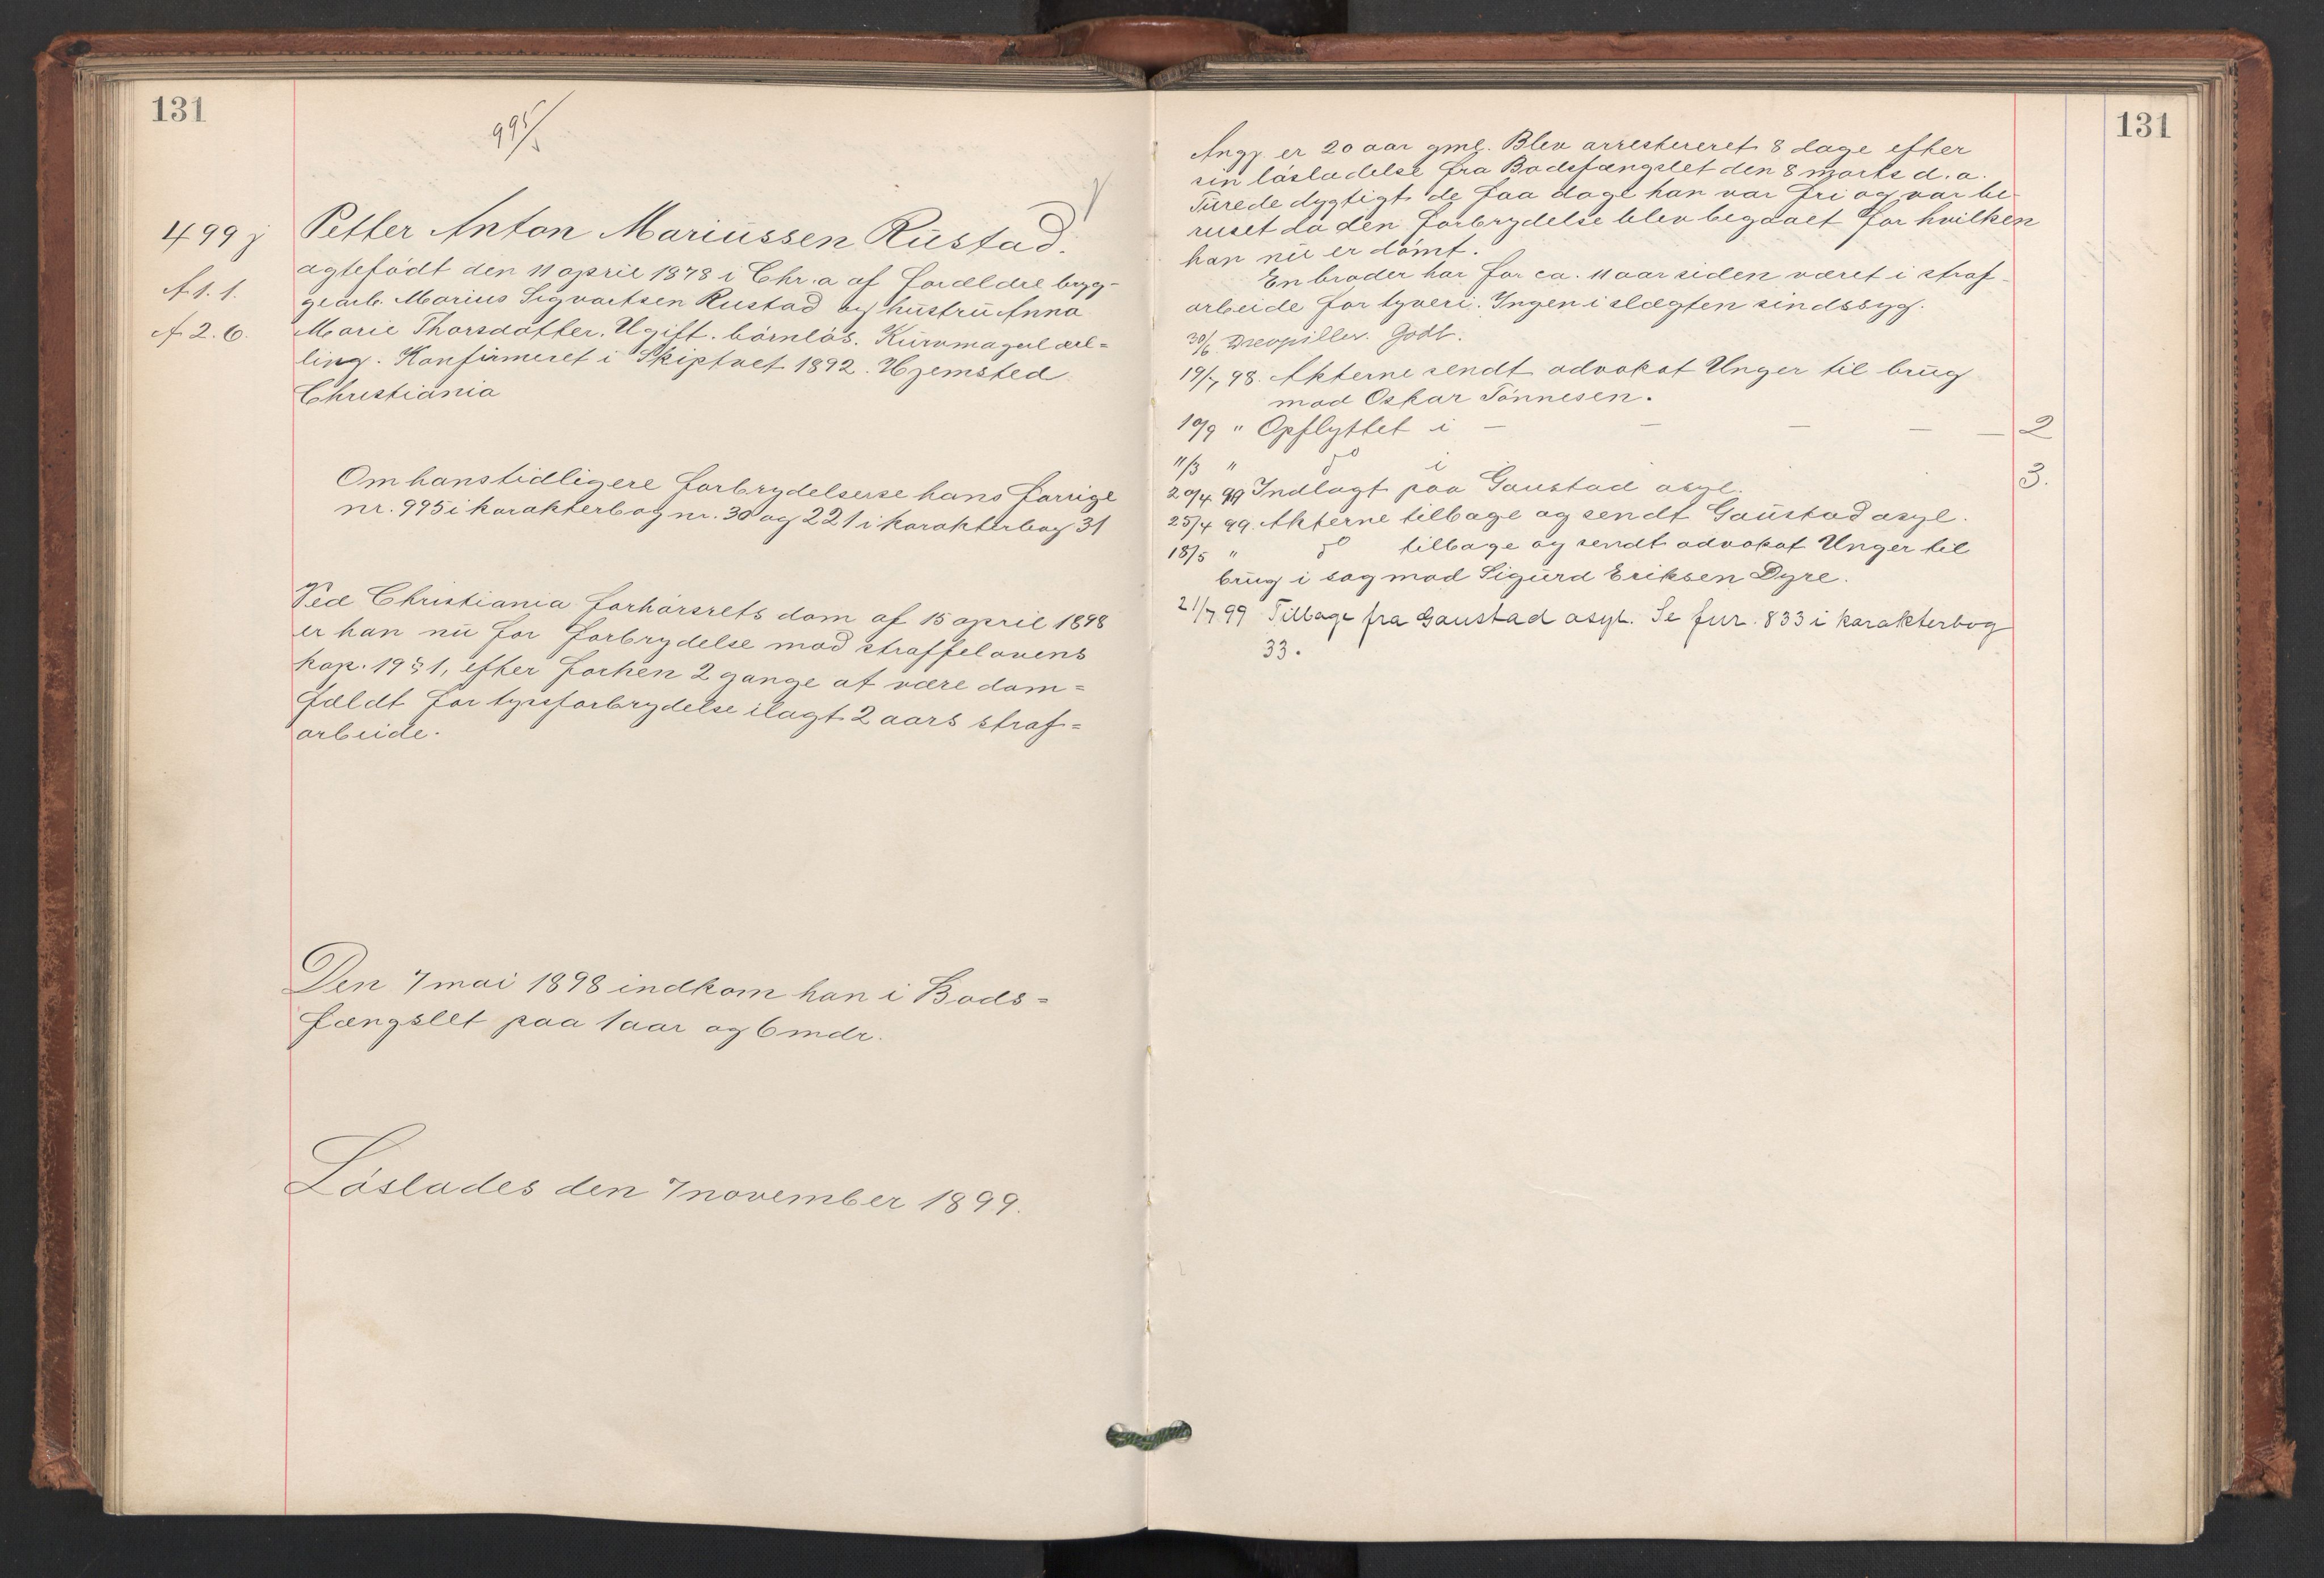 131
995/
499 j
A 1. 1.
A 2. 6.
Petter Anton Mariussen Rustad.
ægtefødt den 11 april 1878 i Chr.a af forældre bryg-
gearb. Marius Sigvartsen Rustad og hustru Anna
Marie Thorsdatter. Ugift. børnløs. Kurvmagerlær=
ling. Konfirmeret i Skiptvet 1892. Hjemsted
Christiania
Om hans tidligere forbrydelser se hans forrige
nr. 995 i karakterbog nr. 30 og 221 i karakterbog 31
Ved Christiania forhørsrets dom af 15 april 1898
er han nu for forbrydelse mod straffelovens
kap. 19 § 1, efter forhen 2 gange at være dom=
fældt for tyvsforbrydelse ilagt 2 aars straf=
arbeide.
Den 7 mai 1898 indkom han i Bods=
fængslet paa 1 aar og 6 mdr.
Løslades den 7 november 1899.
131
Angj. er 20 aar gml. Blev arresteret 8 dage efter
sin løsladelse fra Bodsfængslet den 8 marts d. a.
Turede dygtigt de faa dage han var fri og var be-
ruset da den forbrydelse blev begaaet for hvilken
han nu er dømt.
En broder har for ca. 11 aar siden været i straf-
arbeide for tyveri. Ingen i slægten sindssyg.
30/6. Drevpiller. Godt.
19/7 98. Akterne sendt advokat Unger til brug
mod Oskar Tønnesen.
10/9 " Opflyttet i — — — — — 2
11/3 " do i 3.
20/4 99 Indlagt paa Gaustad asyl.
25/4 99. Akterne tilbage og sendt Gaustad asyl.
18/5 " do tilbage og sendt advokat Unger til
brug i sag mod Sigurd Eriksen Dyre.
21/7 99 Tilbage fra Gaustad asyl. Se fnr. 833 i karakterbog
33.